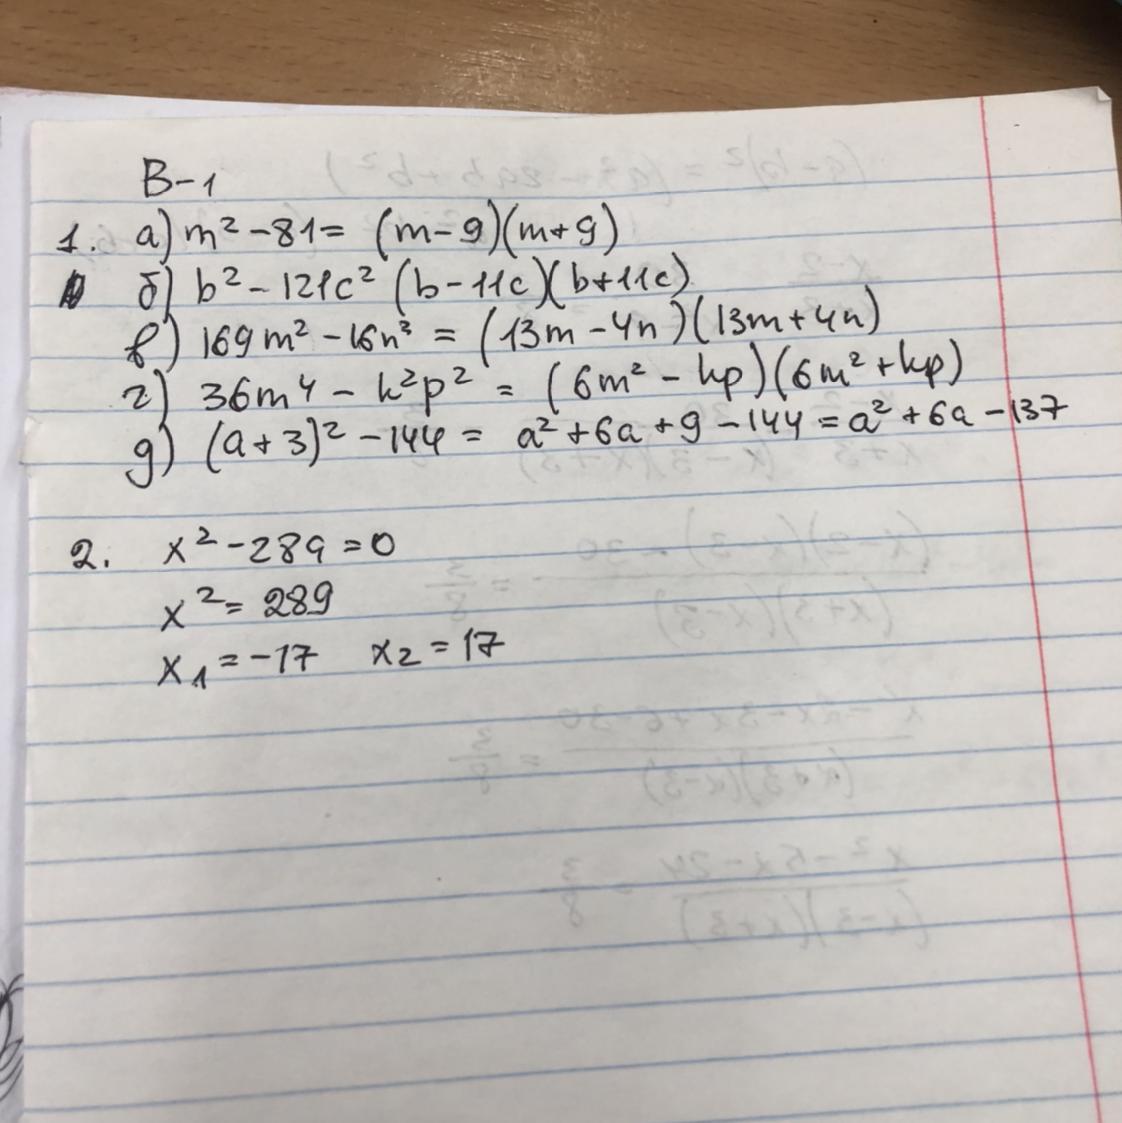 В-1
1. а) m² - 81 = (m - 9)(m + 9)
б) b² - 121c² (b - 11c)(b + 11c)
в) 169m² - 16n³ = (13m - 4n)(13m + 4n)
г) 36m⁴ - k²p² = (6m² - kp)(6m² + kp)
д) (a + 3)² - 144 = a² + 6a + 9 - 144 = a² + 6a - 137
2. x² - 289 = 0
x² = 289
x₁ = -17 x₂ = 17